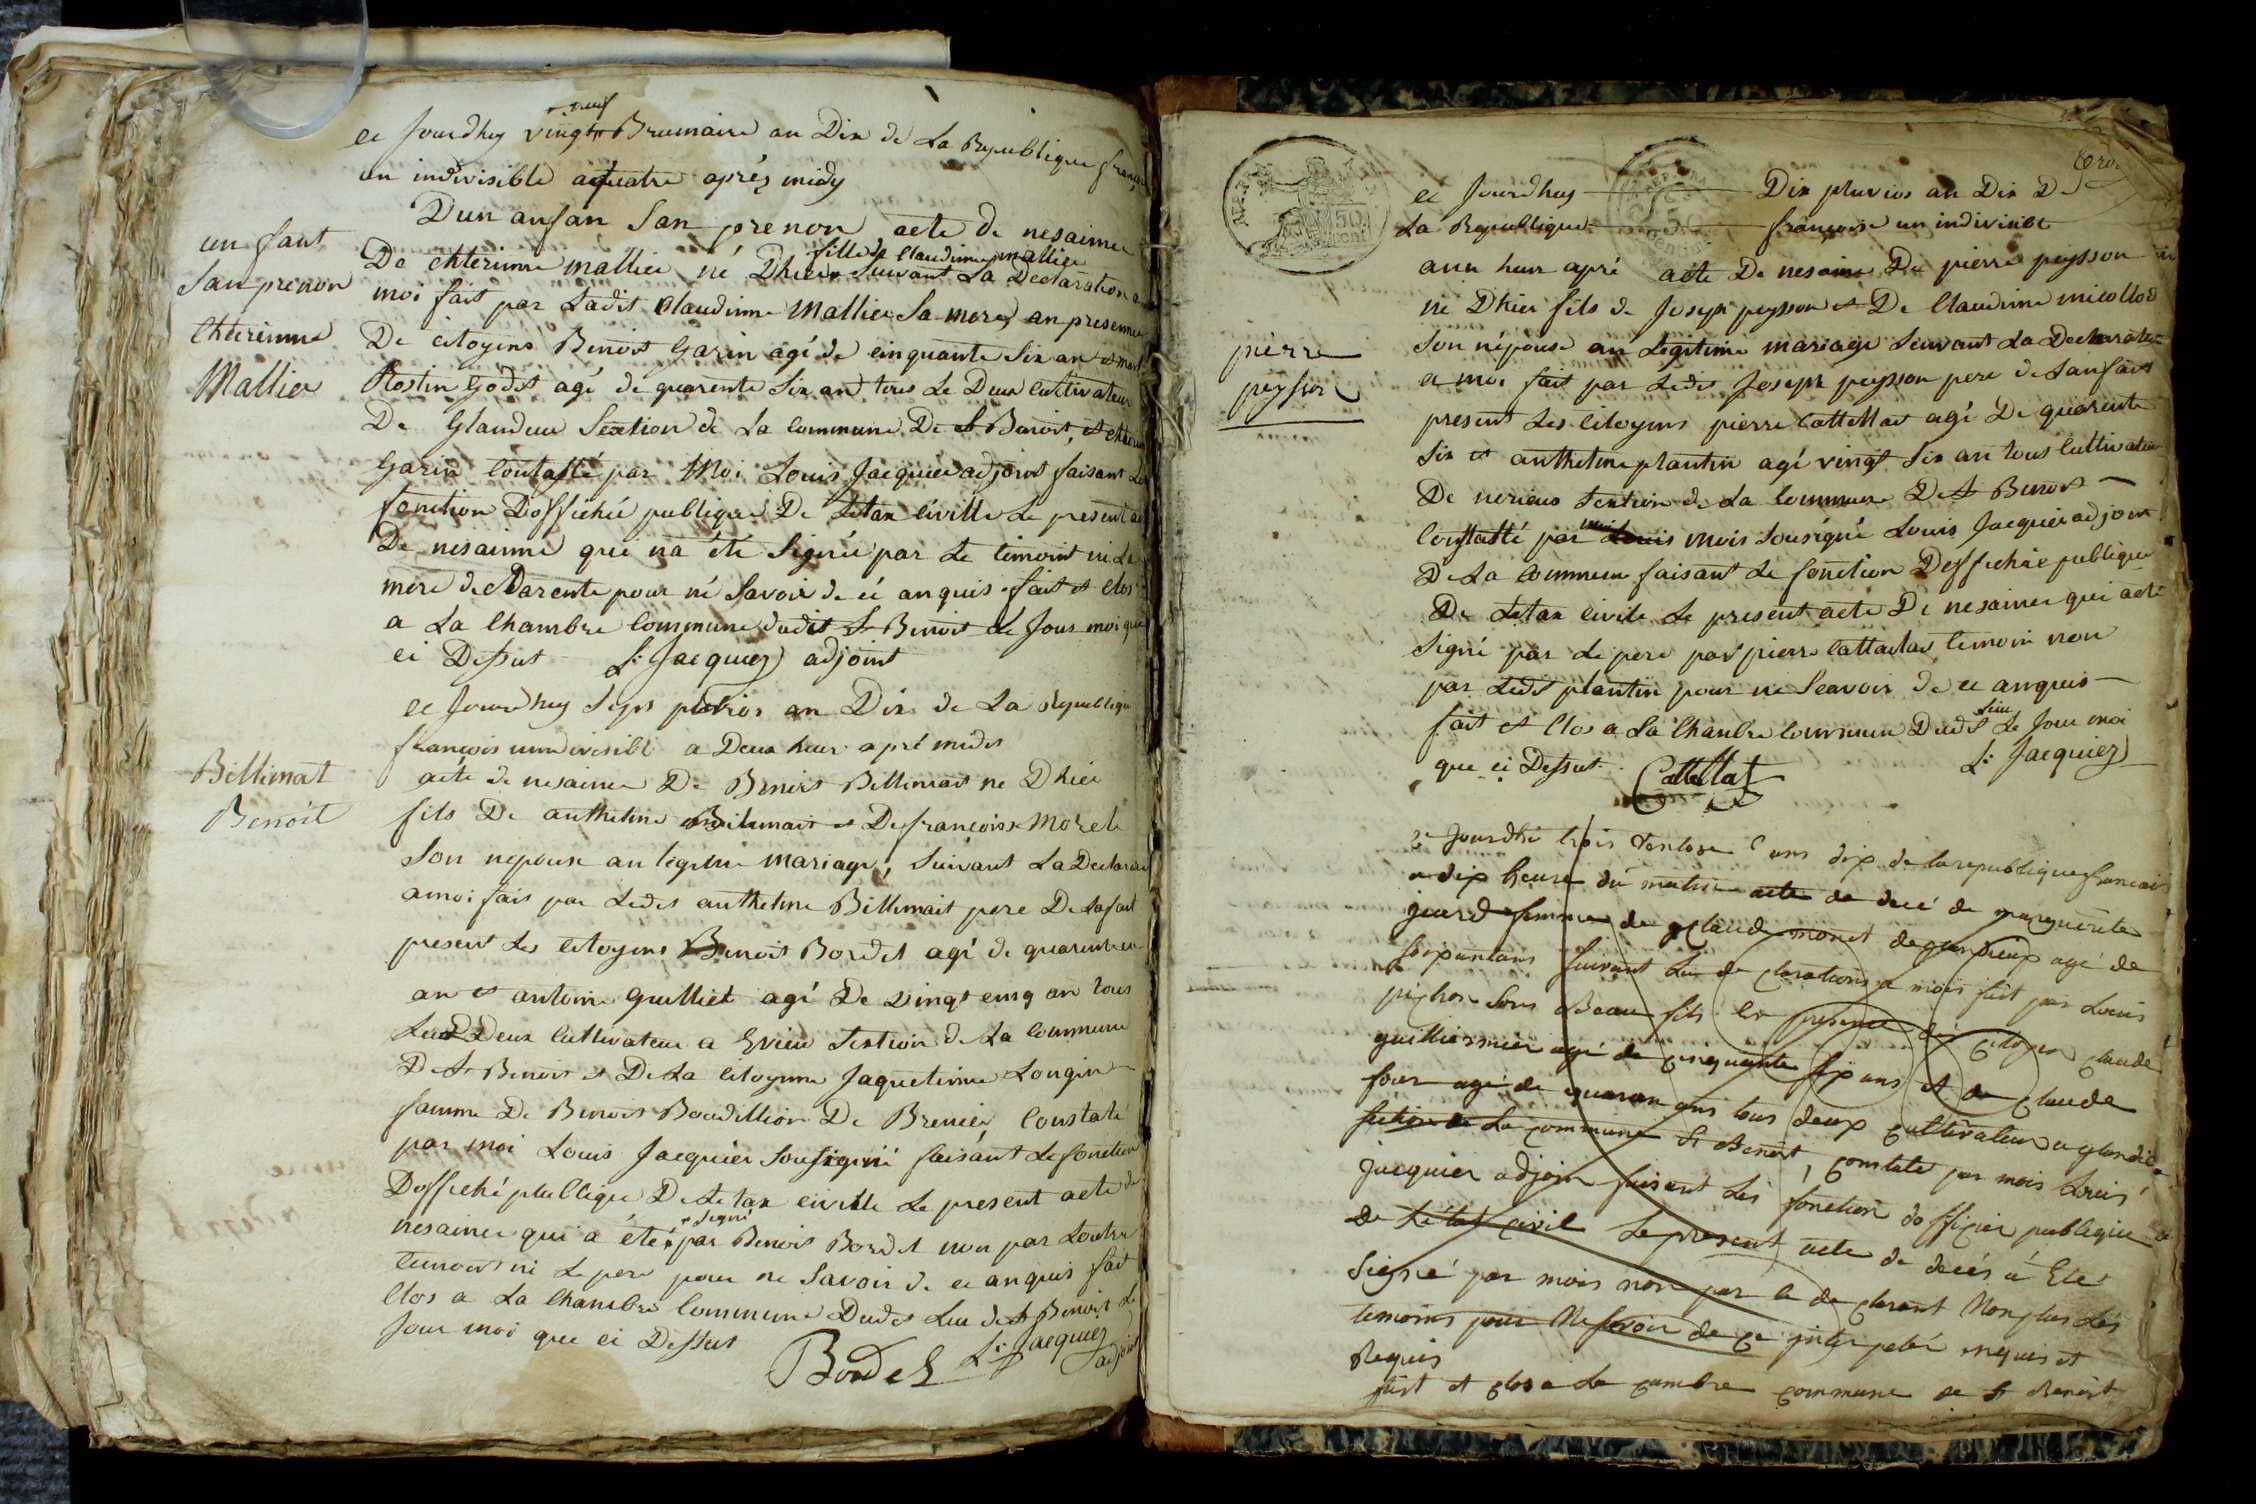 un fant
San prenon
Chterinne
Mallier
ce Jourdhuy vingt neuf Brumaire an Dix de La Republique
un indivisible aquatre aprés midy
Dun anfan San prenon acte de nesaime
De chterinne mallier né Dhier fille de Claudinne mallier Suivant La Declaration a
moi fait par Ladit Claudinne Mallier Sa mere, an presence
De citoyens Benoit Garin agé de cinquante Six an et
Rostin Godet agé de quarente Six and tous Le Deux Cultivateur
De Glandieu Section de La Commune De St Benoit, et
Garin Contasté par Moi Louis Jacquier adjoint faisant Le
fonction Doffichié publique De Letax civille Le present
De nesaime que na été Signée par Le timoint ni La
mere de pour né Savoir de cé anquis fait et clos
a La Chambre Commune dudit St Benoit Le Jour moi que
ci Dessut L: Jacquier adjoint
Billimat
Benoit
ce Jourdhuy Sept pluvios an Dix de La Republique
francois undivisibl a Deux heur apré midit
acte de nesaime De Benoit Billimait né Dhier
fils De anthelme Bilimait et De francoise Morel
Son nepouse an legitime mariage, Suivant La Declaration
amoi fait par Ledit anthelme Billimait pere De Lafant
present Les citoyens Benoit Bordet agé de quarente
an et antoine Guilliet agé De vingt cinq an tous
Les Deux Cultivateur a Evieu Section de La Commune
De St Benoit et De La citoyenne Jaquelinne Longin
famme De Benoit Boudillion De Brenier, Constaté
par moi Louis Jacquier Sousigné faisant Le fonction
Doffiché publique De Letax civille Le present acte de
nesaime qui a été signé par Benoit Bordet non par Loutre
temoint ni Le pere pour ne Savoir de ce anquis fait
Clos a La Chambre Commune Dudit Lieu de St Benoit Le
Jour moi que ci Dessut
Bordet L: Jacquier
adjoint
50
cent
50
pierre
peysson
ce Jourdhuy Dix pluvios an Dix De
La Republique francoise un indivisibl
aune heur apré acte De nesaime De pierre peysson
né Dhier fils de Joseph peysson et De Claudinne micollod
Son népouse an Legitime mariage Suivant La Declaration
a moi fait par Ledit Joseph peysson pere de Lanfant
present Les Citoyens pierre Cattellat agé De quarente
Six et anthelme plantin agé vingt Six an tous Cultivateur
De Section de La Commune De St Benoit
Constatté par moi Louis mois Sousigné Louis Jacquier adjoin
De La Commune faisant Le fonction Deffichié publique
De Letax civile Le present acte De nesaime qui a été
Signé par Le pere par pierre Cattellat temoin non
par Ledit plantin pour ne Scavoir de ce anquis
fait et Clos a La Chambre Commune Dudit Lieu Le Jour moi
que ci Dessut Cattellat L: Jacquier
ce Jourdhi trois Ventose l'ans dix de la republique francais
a dix heure du matin acte de decé de marguerite
femme de claude monet de agé de
soixantans suivant La declarations a mois fait par Louis
pichon Sons Beau fils en presence des citoyen claude
guilliermier agé de cinquante six ans et de claude
four agé de quaran ans tous deux cultivateur a glandieu
section de La commune St Benoit, constaté par mois Louis
Jacquier adjoin faisent Les fonction dofficier publique
de Létat civil Le present acte de decés a Eté
Signé par mois non par le declarant Non plus Les
temoins pour Ne Savoir de ce interpelér enquis et
Requis
fait et clos a La cambre commune de St Benoit